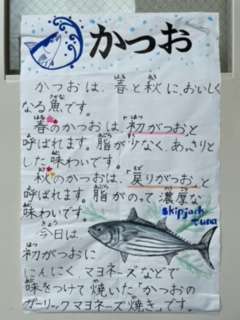 かつお
かつおは、春と秋に、おいしく
なる魚です。
春のかつおは、初がつおと
呼ばれます。脂が少なく、あっさりと
した味わいです。
秋のかつおは、「戻りがつお」と
呼ばれます。脂がのって濃厚な
味わいです。
skipjack
tuna
今日は
初がつおに
にんにく、マヨネーズなどで
味をつけて焼いた"かつおの
ガーリックマヨネーズ焼き"です。